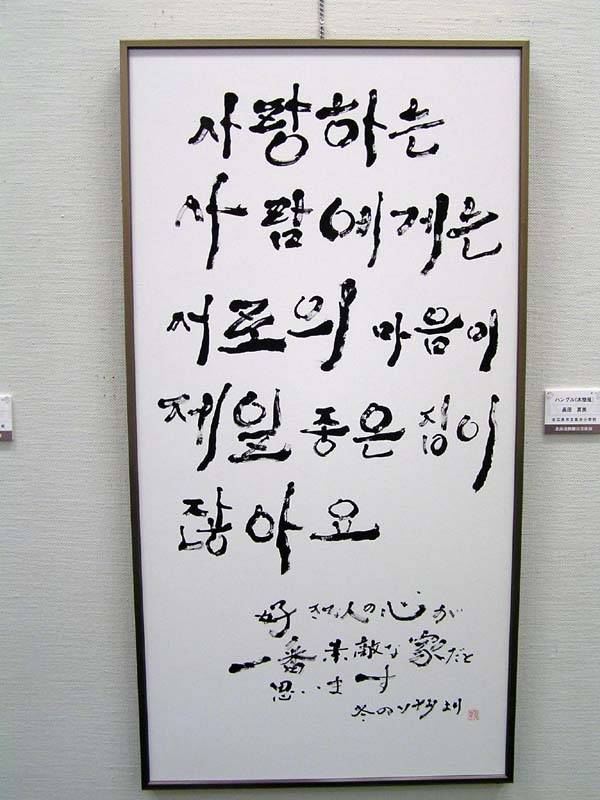 사랑하는
사람에게는
서로의 마음이
제일 좋은 집이
잖아요
好きな人の心が
一番素敵な家だと
思います
冬のソナタより
ハングル(木簡風)